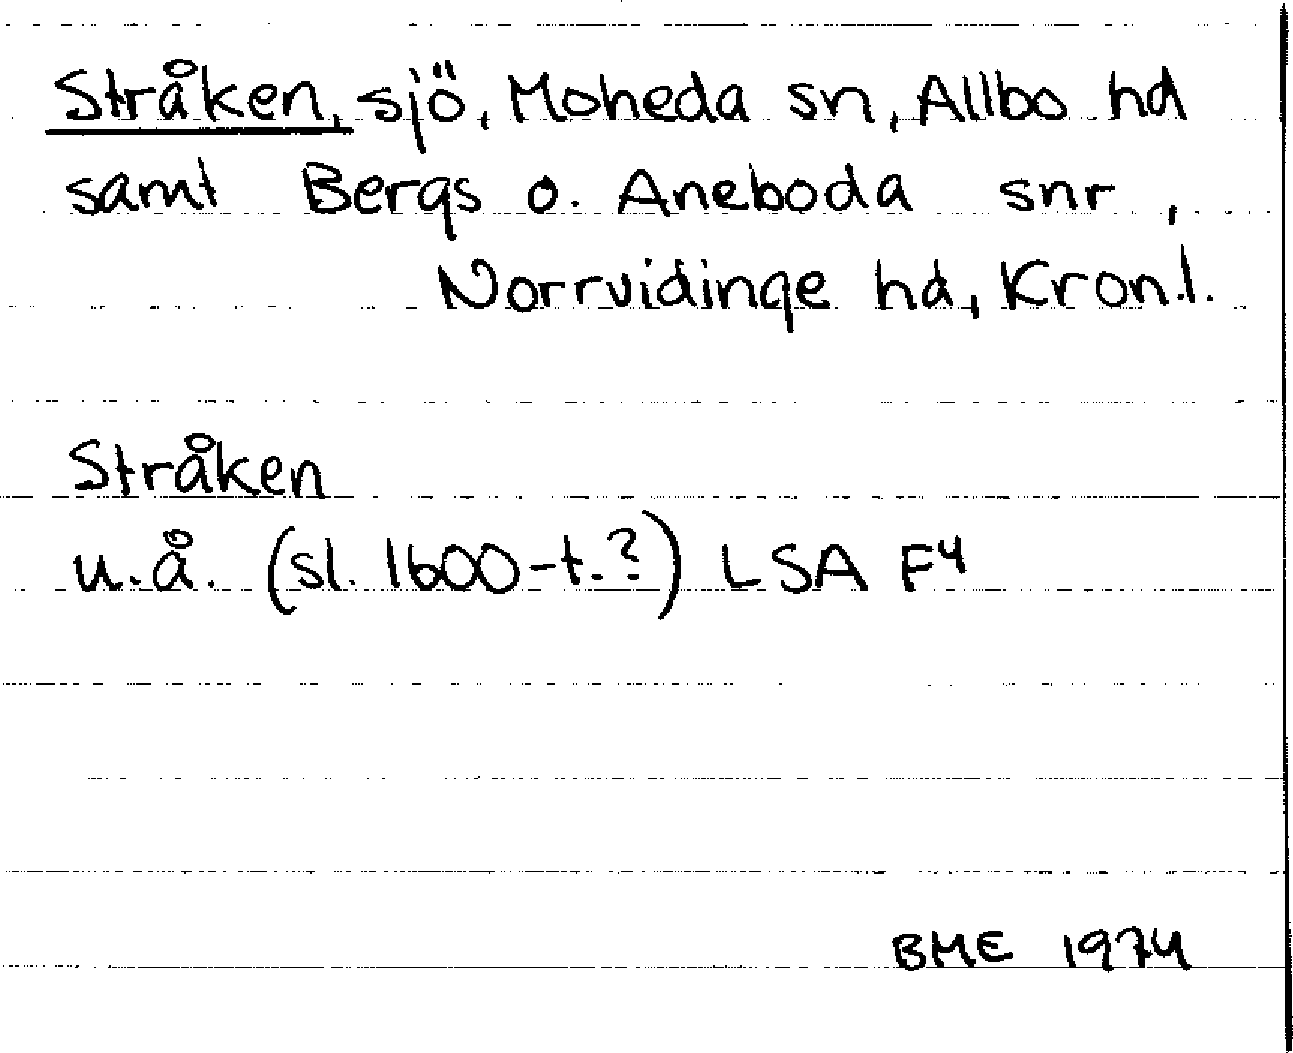 Stråken, sjö, Moheda sn, Allbo hd
samt Bergs o. Aneboda snr,
Norrvidinge hd, Kron.l.
Stråken
u.å. (sl. 1600-t.?) LSA F4
BME 1974